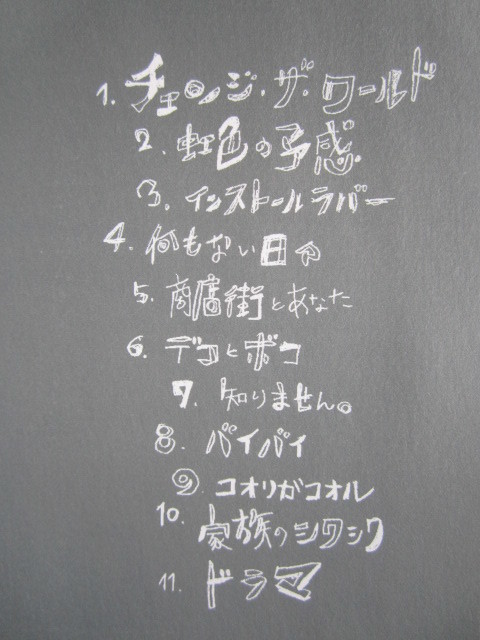 1. チェンジ・ザ・ワールド
2. 虹色の予感
3. インストールラバー
4. 何もない日々
5. 商店街とあなた
6. デコとボコ
7. 知りません。
8. バイバイ
9. コオリガコオル
10. 家族のシワシワ
11. ドラマ